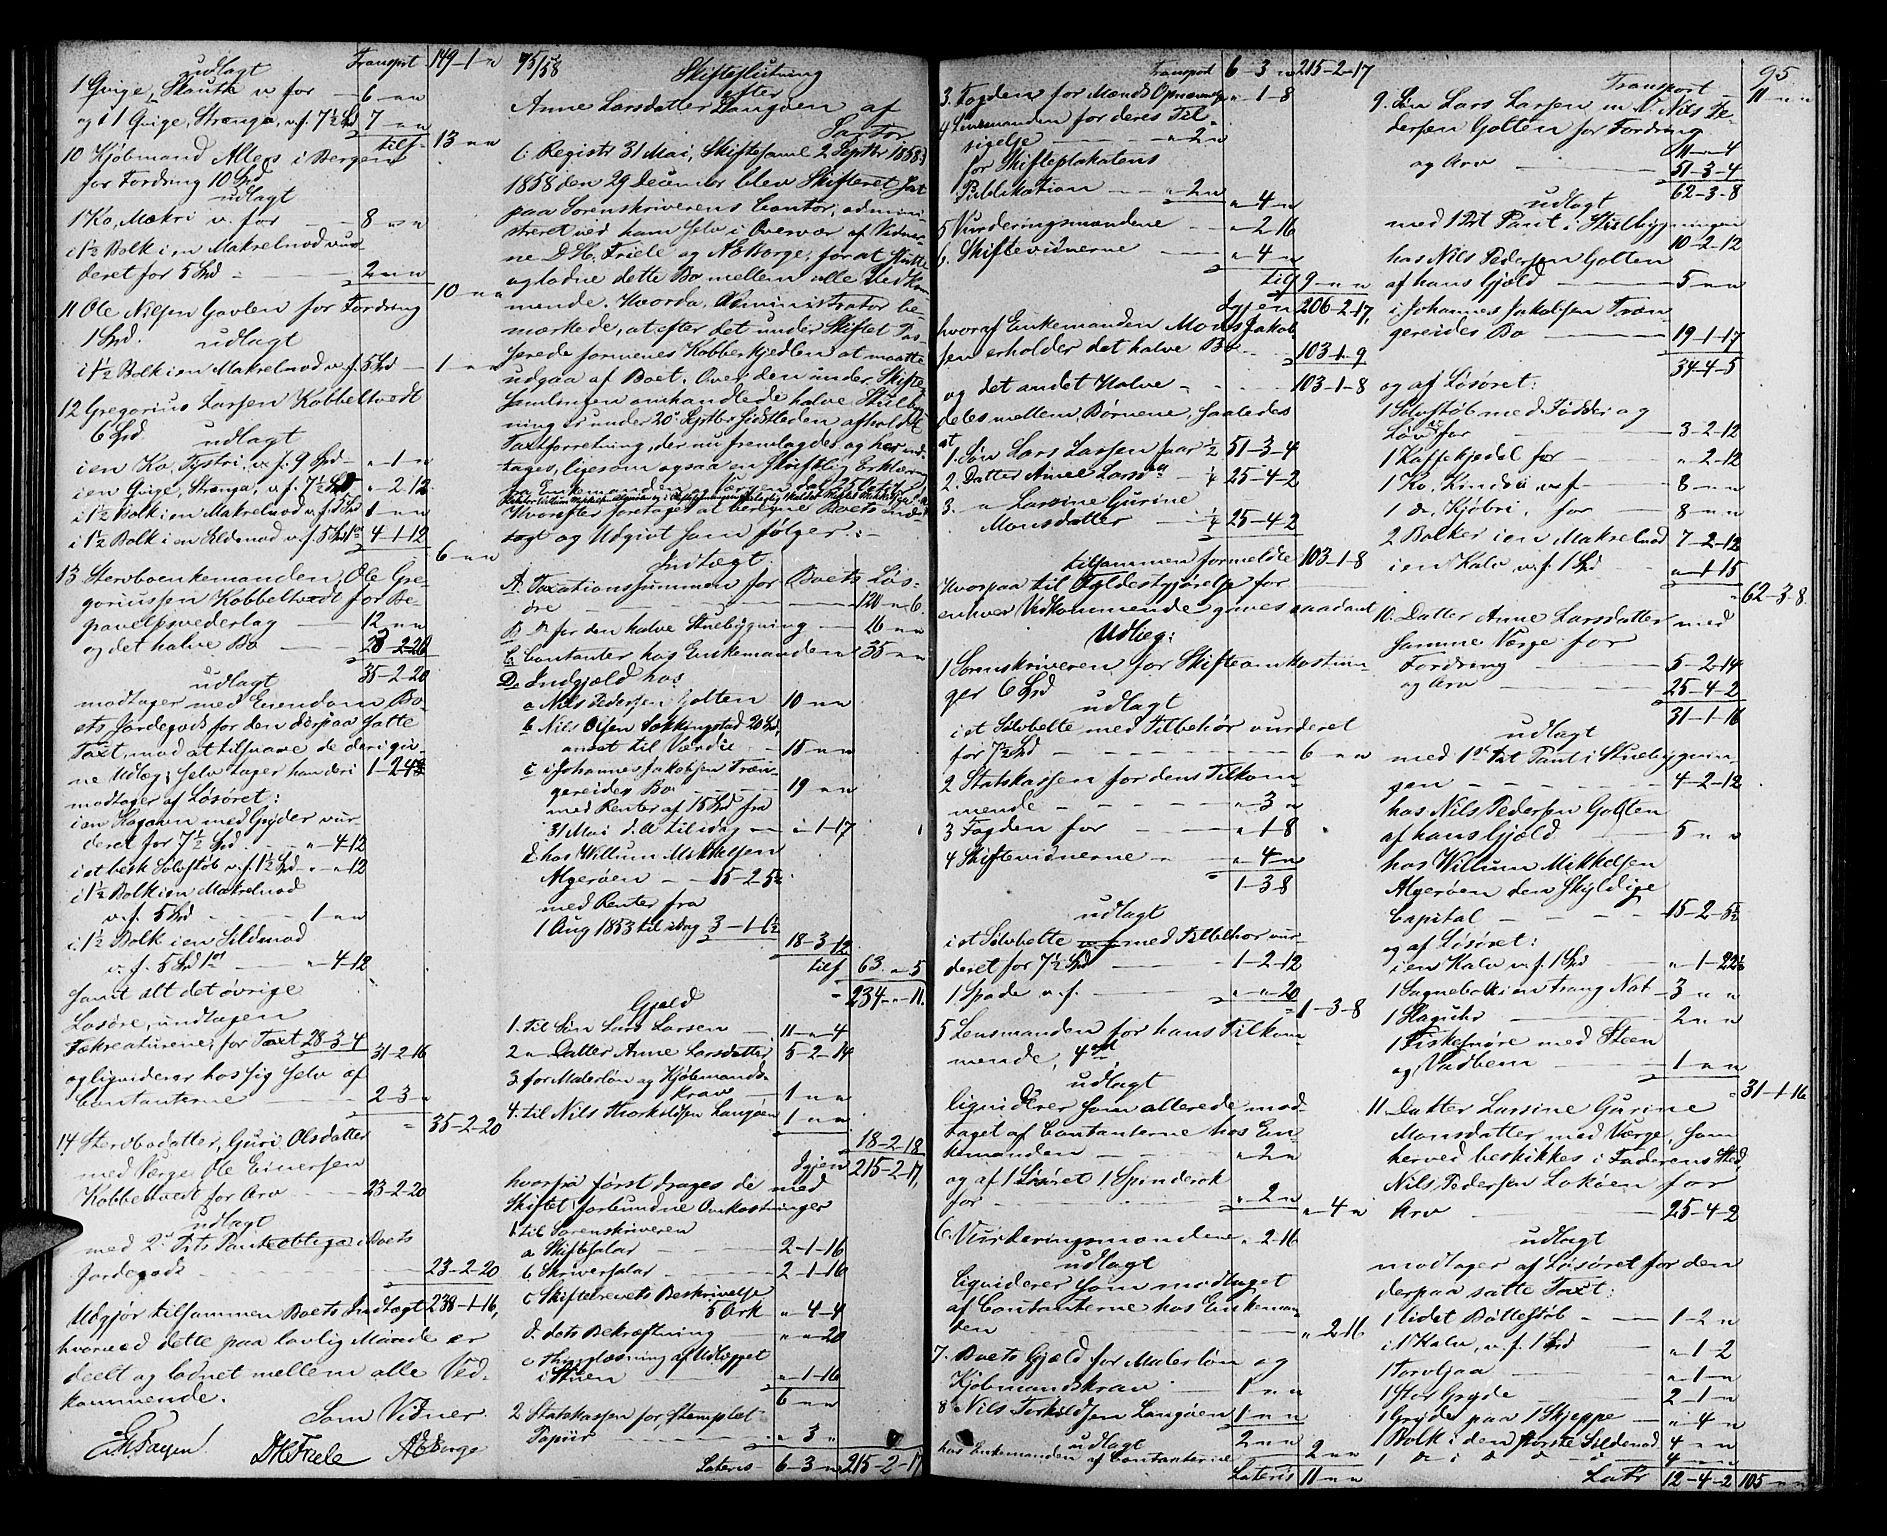 Transport 149-1-"
udlagt
1 Qvige, Skauta v. for 6-"-"
og i 1 Qvige, Stranga, v. f. 7½ Spd 7-"-"
tils. 13-"-"
10 Kjøbmand Allers i Bergen
for Fordring 10 Spd
udlagt
1 Ko, Makri v. for 8-"-"
i 1½ Bolk i en Makrelnod vur-
deret for 5 Spd 2-"-"
10-"-"
11 Ole Nilsen Gavlen for Fordring
1 Spd. udlagt
i 1½ Bolk i en Makrelnod v. f. 5 Spd 1-"-"
12 Gregorius Larsen Kobbeltvedt
6 Spd. udlagt
i en Ko, Tystri, v. f. 9 Spd "-1-"
i en Qvige, Stranga, v. f. 7½ Spd "-2-12
i 1½ Bolk i en Makrelnod v. f. 5 Spd 1-"-"
i 1½ Bolk i en Sildenod v. f. 5 Spd 4-1-12
6-"-"
13 Stervboenkemanden, Ole Gre-
goriussen Kobbeltvedt for Be-
gravelsvederlag 12-"-"
og det halve Bo 23-2-20
35-2-20
udlagt
modtager med Eiendom Bo-
ets Jordegods for den derpaa satte
Taxt, mod at tilsvare de deri giv-
ne Udlæg; selv tager han deri 1-2-4
modtager af Løsøret:
i en Kagovn med Gryder vur-
deret for 7½ Spd "-4-12
i et besk. Sølvstøb v. f. 1½ Spd "-"-12
i 1½ Bolk i en Makrelnod
v. f. 5 Spd 1-"-"
i 1½ Bolk i en Sildenod
v. f. 5 Spd "-4-12
samt alt det øvrige
Løsøre, undtagen
Fækreaturene, for Taxt 28-3-4
31-2-16
og liqviderer hos sig selv af
Contanterne 2-3-"
35-2-20
14 Stervbodatter, Guri Olsdatter
med Værge Ole Einersen
Kobbeltvedt for Arv 23-2-20
udlagt
med 2den Prts Panteobliga. i Boets
Jordegods 23-2-20
Udgjør tilsammen Boets Indtægt 238-1-16,
hvorved dette paa lovlig Maade er
deelt og lodnet mellem alle Ved-
kommende.
Som Vidner
DHFriele AEBorge
75/58 Skifteslutning
efter
Anne Larsdatter Langøen af
Sartor
(: Registr 31 Mai, Skiftesaml 2 Septbr 1858:)
1858 den 29 December blev Skifteret sat
paa Sorenskriverens Contor, admini-
streret ved ham selv i Overvær af Vidner-
ne D. H. Friele og A. E. Borge, for at slutte
og lodne dette Bo mellem alle Vedkom-
mende. Hvorda, Administrator be-
mærkede, at efter det under Skiftet Pas-
serede formenes Kobberkjedlen at maatte
udgaa af Boet. Over den under Skifte-
samlingen omhandlede halve Stuebyg-
ning er under 20 Septbr sidstleden afholdt
Taxtforretning, der nu fremlagdes og her ind-
tages, ligesom ogsaa en skriftlig Erklæring
fra Enkemanden og Værgen dat. 25 Octbr
Hvorefter foretoges at beregne Boets Ind-
tægt og Udgivt som følger:-
Indtægt.
A. Taxationssummen for Boets Løs-
øre 120-"-6
B. Do for den halve Stuebygning 16-"-"
C. Contanter hos Enkemanden 35-"-"
D. Indgjæld hos
a Nils Pedersen Golten 10-"-"
b Nils Olsen Søkkingstad 20 Spd,
anset til Værdie 15-"-"
c i Johannes Jakobsen Træn-
gereides Bo 19-"-"
med Renter af 15 Spd fra
31 Mai d. A. til idag "-1-17
d hos Willum Mikkelsen
Algerøen 15-2-5½
med Renter fra
1 Aug 1853 til idag 3-1-6½
18-3-12
tils 63-"-5
234-"-11.
Gjæld
1. til Søn Lars Larsen 11-"-4
2 " Datter Anne Larsdatter 5-2-14
3. for Malerløn og Kjøbmands-
krav 1-"-"
4. til Nils Thorkildsen Langøen 1-"-"
18-2-18
Igjen 215-2-17,
hvorfra først drages de med
Skiftet forbundne Omkostninger
1. til Sorenskriveren
a Skiftesalar 2-1-16
b Skriversalar 2-1-16
c Skiftebrevets Beskrivelse
5 Ark "-4-4
d. dets Bekræftning "-"-20
e. Thinglæsning af Udlægget
i Stuen "-1-16
6-"-"
2 Statskassen for Stemplet
Papiir "-3-"
Lateris 6-3-" 215-2-17
Transport 6-3-" 215-2-17
3. Fogden for Mænds Opnævnelse "-1-8
4 Lensmanden for deres Til-
sigelse "-2-"
for Skifteplakatens
Publikation "-2-"
"-4-"
5 Vurderingsmændene "-2-16
6. Skiftevidnerne "-4-"
tils 9-"-"
Igjen 206-2-17,
hvoraf Enkemanden Mons Jakob-
sen erholder det halve Bo 103-1-9
og det andet Halve 103-1-8
deles mellem Børnene, saaledes
at
1. Søn Lars Larsen faar ½ 51-3-4
2. Datter Anne Larsd. ¼ 25-4-2
3. " Larsine Gurine
Monsdatter ¼ 25-4-2
tilsammen formeldte 103-1-8
Hvorpaa til Fyldestgjørelse for
enhver Vedkommende gaves saadant
Udlæg:
1 Sorenskriveren for Skifteomkostnin-
ger 6 Spd
udlagt
i et Sølvbelte med Tilbehør vurderet
for 7½ Spd 6-"-"
2 Statskassen for dens Tilkom-
mende "-3-"
3 Fogden for "-1-8
4 Skiftevidnerne "-4-"
1-3-8
udlagt
i et Sølvbelte med Tilbehør vur-
deret for 7½ Spd 1-2-12
1 Spade v. f. "-"-20
1-3-8
5 Lensmanden for hans Tilkom-
mende, 4 ort
udlagt
liqviderer som allerede mod-
taget af Contanterne hos En-
kemanden "-2-"
og af Løsøret 1 Spinderok
for "-2-"
"-4-"
6. Vurderingsmændene "-2-16
udlagt
liqviderer som modtaget
af Contanterne hos Enkeman-
den "-2-16
7. Boets Gjæld for Malerløn og
Kjøbmandskrav 1-"-"
8 Nils Torkildsen Langøen 1-"-"
2-"-"
udlagt
hos Enkemanden af Contanterne 2-"-"
Lateris 11-"-"
95
Transport 11-"-"
9. Søn Lars Larsen m. V. Nils Pe-
dersen Golten for Fordring
11-"-4
og Arv 51-3-4
62-3-8
udlagt
med 1 Prt Pant i Stuebygningen
10-2-12
hos Nils Pedersen Golten
af hans Gjæld 5-"-"
i Johannes Jakobsen Træn-
gereides Bo 19-1-17
34-4-5
og af Løsøret:
1 Sølvstøb med Fødder og
Løv for 3-2-12
1 Kaffekjedel for "-2-12
1 Ko, Lindsi v. f. 8-"-"
1 do, Kjøbri, for 8-"-"
2 Bolker i en Makrelnod 7-2-12
i en Kalv v. f. 1 Spd "-1-15
62-3-8
10. Datter Anne Larsdatter med
samme Værge for
Fordring 5-2-14
og Arv 25-4-2
31-1-16
udlagt
med 1ste Prt Pant i Stuebygnin-
gen 4-2-12
hos Nils Pedersen Golten
af hans Gjæld 5-"-"
hos Willum Mikkelsen
Algerøen den skyldige
Capital 15-2-5½
og af Løsøret:
i en Kalv v. f. 1 Spd "-1-22½
1 Sognebolk i en trang Not 3-"-"
1 Slaguhr 2-"-"
1 Fiskesnøre med Steen
og Vadbeen 1-"-"
31-1-16
11. Datter Larsine Gurine
Monsdatter med Værge, som
herved beskikkes i Faderens Sted,
Nils Pedersen Lokøen for
Arv 25-4-2
udlagt
modtager af Løsøret for den
derpaa satte Taxt:
1 lidet Bøttestøb 1-2-"
i 1 Kalv, v. f. 1 Spd "-1-2
1 Torvljaa "-1-"
1 Stor Gryde 2-1-"
1 Gryde paa 1 Skjeppe "-4-"
1 Bolk i den største Sildenod 4-"-"
1 do i do do 4-"-"
Latr 12-4-2 105-"-"